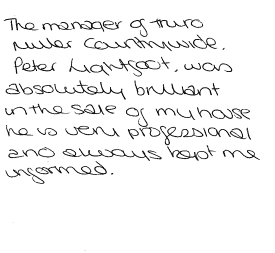 The manager of truro
Miller Countrywide,
Peter Lightfoot, was
absolutely brilliant
in the sale of my house
he is very professional
and always kept me
informed.